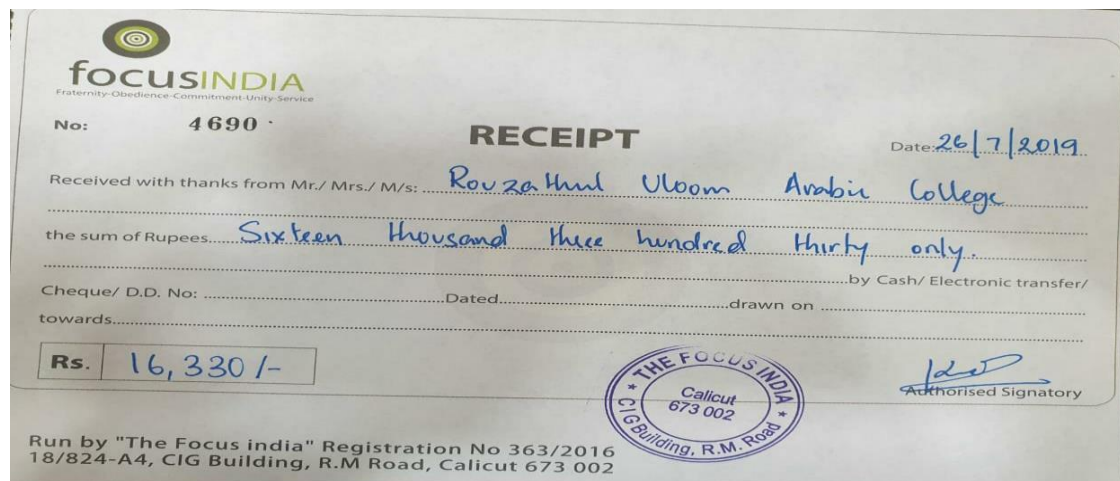 focusINDIA
Fraternity-Obedience-Commitment-Unity-Service
No: 4690
RECEIPT
Date: 26/7/2019
Received with thanks from Mr./ Mrs./ M/s: Rouzathul Uloom Arabic College
the sum of Rupees Sixteen thousand three hundred thirty only.
by Cash/ Electronic transfer/
Cheque/ D.D. No: Dated drawn on
towards
Rs. 16,330/-
THE FOCUS INDIA
Calicut
673 002
CIG Building, R.M. Road
Authorised Signatory
Run by "The Focus india" Registration No 363/2016
18/824-A4, CIG Building, R.M Road, Calicut 673 002